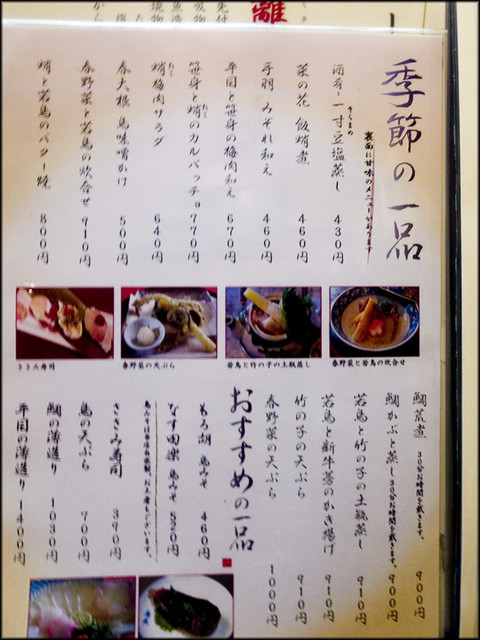 離
季節の一品
裏面に甘味のメニューがあります
酒肴・一寸豆塩蒸し 430円
そらまめ
菜の花 飯蛸煮 460円
手羽 みぞれ和え 460円
平園と笹身の梅肉和え 670円
笹身と蛸のカルパッチョ 770円
たこ
蛸梅肉サラダ 640円
たこ
春大根 鳥味噌かけ 500円
春野菜と若鳥の炊合せ 910円
蛸と若鳥のバター焼 800円
ささみ寿司
春野菜の天ぷら
若鳥と竹の子の土瓶蒸し
春野菜と若鳥の炊合せ
鯛荒煮 30分お時間を戴きます。 900円
鯛かぶと蒸し 30分お時間を戴きます。 900円
若鳥と竹の子の土瓶蒸し 910円
若鳥と新牛蒡のかき揚げ 910円
竹の子の天ぷら 910円
春野菜の天ぷら 1000円
おすすめの一品
もろ胡 鳥みそ 460円
なす田楽 鳥みそ 520円
鳥みそは当店自家製、お土産もございます。
ささみ寿司 390円
鳥の天ぷら 700円
鯛の薄造り 1030円
平園の薄造り 1400円